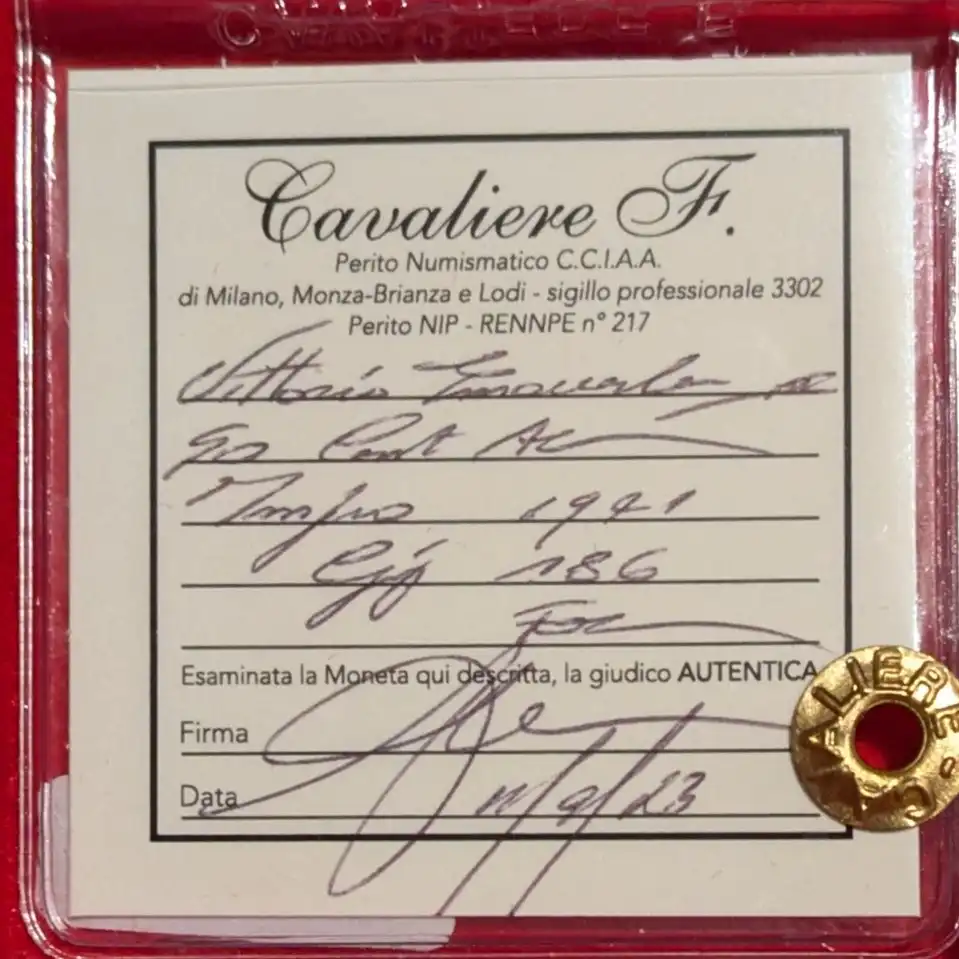 Cavaliere F.
Perito Numismatico C.C.I.A.A.
di Milano, Monza-Brianza e Lodi - sigillo professionale 3302
Perito NIP - RENNPE n° 217
Vittorio Emanuele III
50 Cent Ac
Impero 1941
Gig 186
FDC
Esaminata la Moneta qui descritta, la giudico AUTENTICA
Firma
Data 11/9/23
CAVALIERE